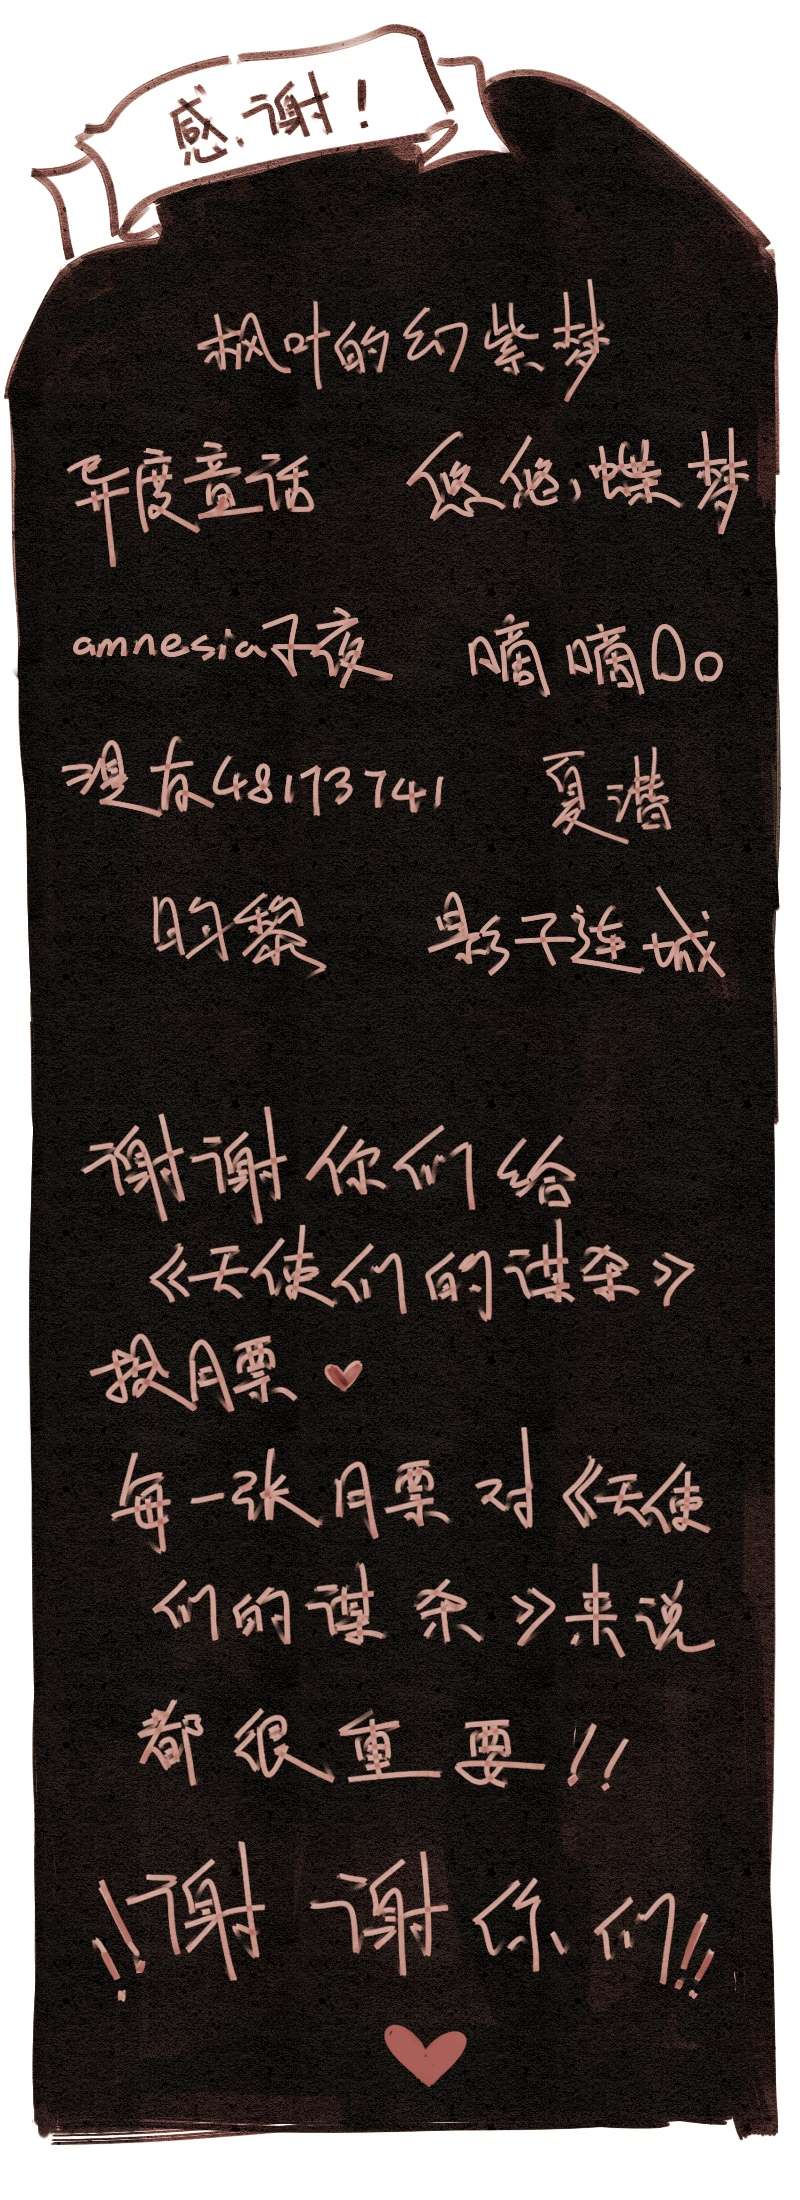 感谢！
枫叶的幻紫梦
异度童话 悠悠，蝶梦
amnesia子夜 嘀嘀Do
没有48173741 夏潜
昀黎 影子连城
谢谢你们给
《天使们的谋杀》
投月票
每一张月票对《天使
们的谋杀》来说
都很重要!!
!!谢谢你们!!